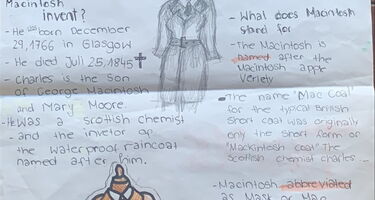 Macintosh
invent?
- He was born December
29,1766 in Glasgow
- He died Jul 25,1845
- Charles is the Son
of George Macintosh
and Mary Moore.
- He was a scottish chemist
- and the invetor of
the waterproof raincoat
named after him.
- What does Macintosh
stand for
- The Macintosh is
named after the
Macintosh apple
Veriety
- The name "Mac Coat"
for the typical British
Short coat was originally
only the Short form of
"Mackintosh coat" The
Scottish chemist charles...
- Macintosh abbreviated
as Mask or Mac